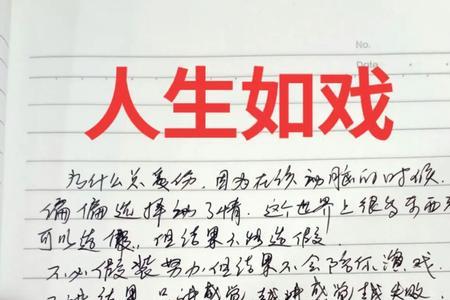 No.
Date
人生如戏
为什么总受伤，因为在该动脑的时候，
偏偏选择动了情，这个世界上很多东西
可以造假，但结果不能造假，
不必假装努力，但结果不会陪你演戏，
结果，只讲感觉，越讲感觉越失败